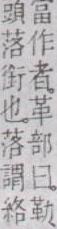 當作者革部曰勒
頭落銜也落謂絡